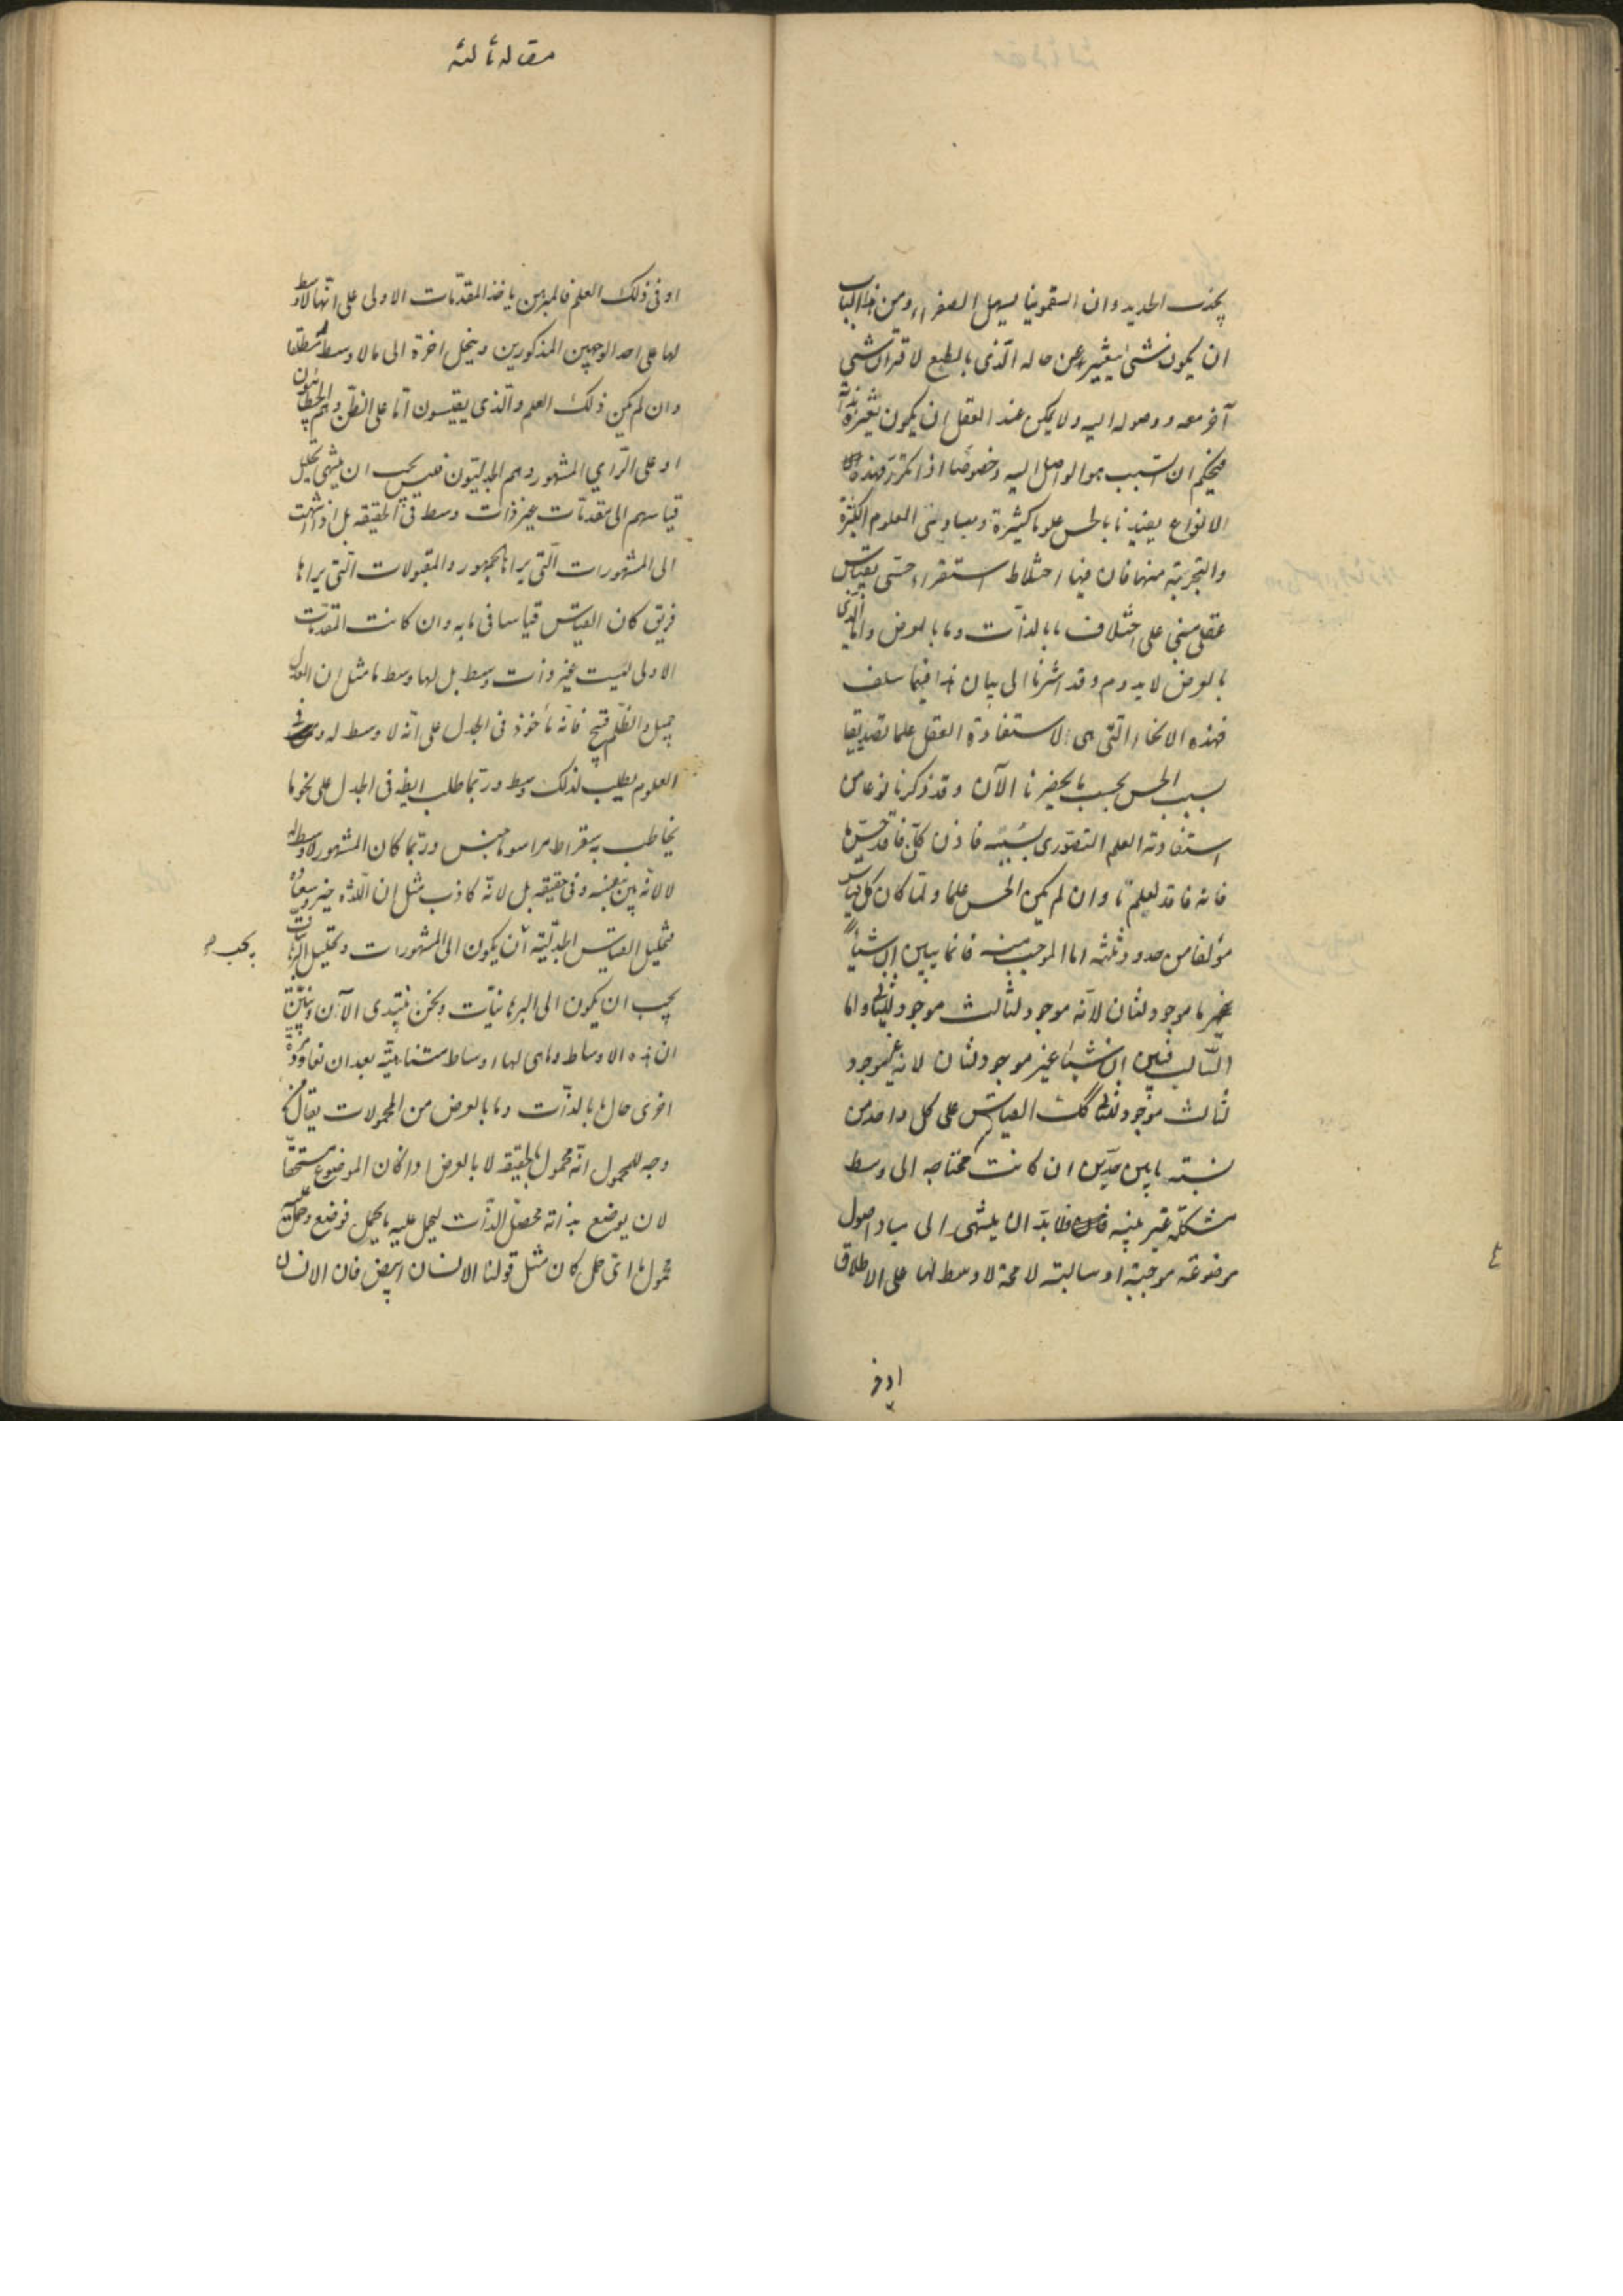 يجذب الحديد وان السقمونيا يسهل الصفراء ومن هذا الباب
ان يكون شئ يتغير عن حاله الذى بالطبع لاقتران شئ
آخر معه ووصوله اليه ولا يمكن عند العقل ان يكون تغيره بذاته
فيحكم ان السبب هو الواصل اليه وخصوصا اذا تكرر فهذه
الانواع يفيدنا بالحس علوما كثيرة ومبادئ العلوم الكثيرة
والتجربة منها فان فيها اختلاط استقراء حسى بقياس
عقلى مبنى على اختلاف ما بالذات وما بالعرض وان الذى
بالعرض لا يدوم وقد اشرنا الى بيان هذا فيما سلف
فهذه الانحاء التى هى لاستفادة العقل علما تصديقيا
بسبب الحس بحسب ما يحضرنا الآن وقد ذكرنا نوعا من
استفادته العلم التصورى بسببه فاذن كل فاقد حس ما
فانه فاقد لعلم ما وان لم يكن الحس علما ولما كان كل قياس
مؤلفا من حدود ثلثه اما الموجب منه فانما يبين ان شيئا
ما موجود لثان لانه موجود لثالث موجود للثانى واما
السالب فيبين ان شيئا غير موجود لثان لانه غير موجود
لثالث موجود للثانى كك القياس على كل واحد من
نسبته ما بين حدين ان كانت محتاجه الى وسط
مشكلة غير بينه فلابد ان ينتهى الى مباد واصول
موضوعة موجبة او سالبته لا محة لا وسط لها على الاطلاق
او فى
مقاله ثالثه
او فى ذلك العلم فالمبرهن ياخذ المقدمات الاولى على انها لا وسط
لها على احد الوجهين المذكورين وينحل اخرة الى ما لا وسط له مطلقا
وان لم يكن ذلك العلم والذى يقيسون اما على الظن وهم الخطابيون
او على الراي المشهور وهم الجدليون فليس يجب ان ينتهى تحليل
قياسهم الى مقدمات غير ذات وسط فى الحقيقه بل اذا انتهت
الى المشهورات التى يراها الجمهور والمقبولات التى يراها
فريق كان القياس قياسا فى بابه وان كانت المقدمات
الاولى ليست غير ذات وسط بل لها وسط ما مثل ان العدل
جميل والظلم قبيح فانه مأخوذ فى الجدل على انه لا وسط له وفى
العلوم يطلب لذلك وسط وربما طلب ايضا فى الجدل على نحو ما
يخاطب به سقراط ثراسوماخس وربما كان المشهور لا وسط له
لا لانه بين بنفسه وفى حقيقه بل لانه كاذب مثل ان اللذه خير وسعاده
فتحليل القياس الجدلية ان يكون الى المشهورات وتحليل البرهانيات
يجب ان يكون الى البرهانيات ونحن نبتدى الآن ونبين
ان هذه الاوساط وما هى لها اوساط متناهية بعد ان نعاود مرة
اخرى حال ما بالذات وما بالعرض من المحمولات يقال من
وجه للمحمول انه محمول بالحقيقه لا بالعرض اذا كان الموضوع مستحقا
لان يوضع بذاته محصل الذات ليحمل عليه ما يحمل فوضع وحمل عليه
محمول ما اى حمل كان مثل قولنا الانسان ابيض فان الانسان